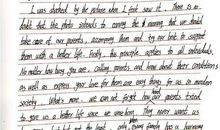 I was shocked by the picture when I first saw it. There is no
doubt that the photo intends to convey the meaning that we should
take care of our parents, accompany them and try our best to support
them with a better life. Firstly, this principle applies to all individuals.
No matter how busy you are, calling parents and know about their conditions
as well as express your love for them are easy things for us in modern
society. What's more, we can not forget how our parents tried
to give us a better life since we were born. They never want us